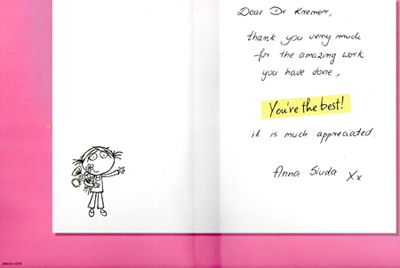 Dear Dr Kremer,
thank you very much
for the amazing work
you have done,
You're the best!
it is much appreciated.
Anna Siuda Xx